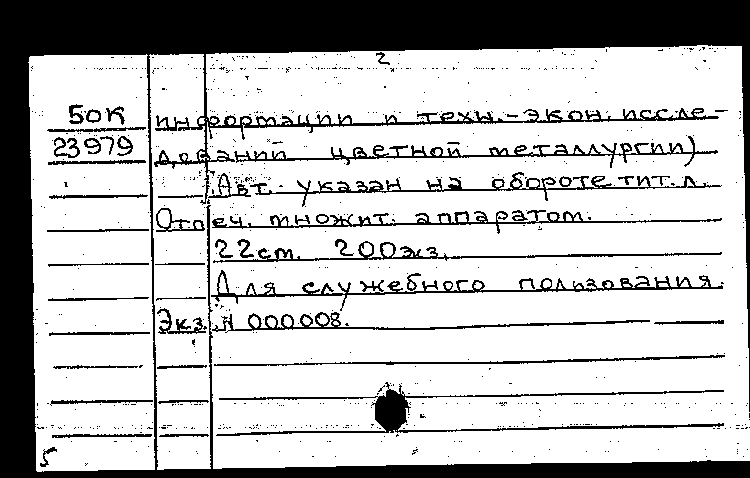 2
БОК
23979
информации и техн.-экон. иссле-
дований цветной металлургии)
Авт. указан на обороте тит.л.
Отпеч. множит. аппаратом.
22см. 200экз.
Для служебного пользования.
Экз. N 000008.
5